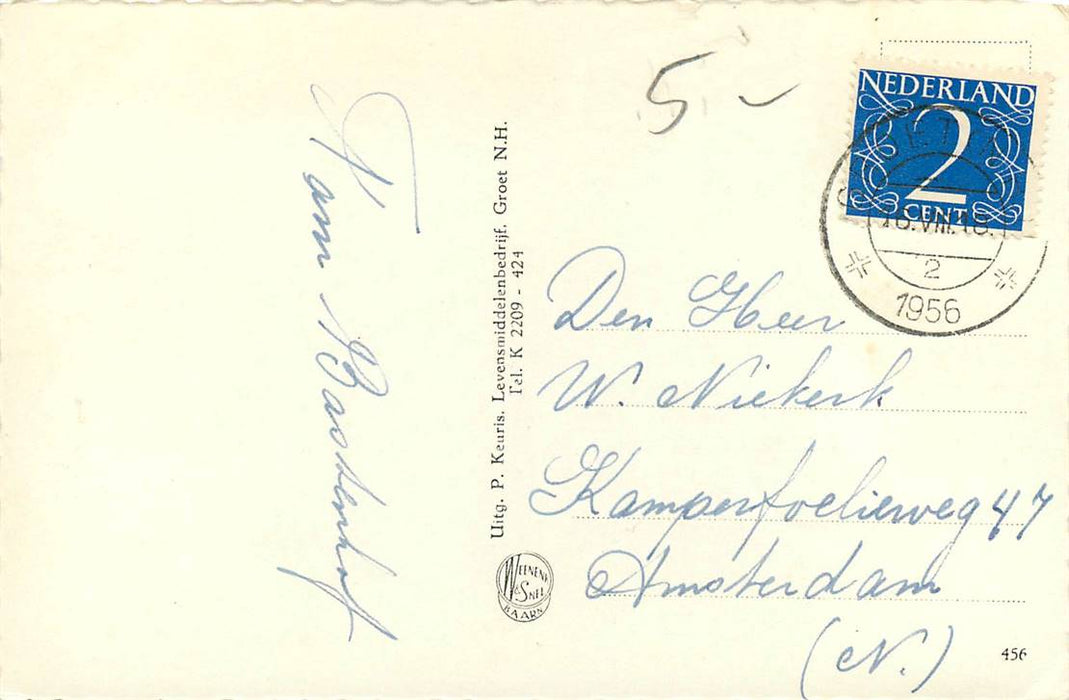 Fam Bastenhof
Uitg. P. Keuris. Levensmiddelenbedrijf. Groet N.H.
Tel. K 2209 - 424
WEENENK
& SNEL
BAARN
5 -
NEDERLAND
2
CENT
16.VIII.18.
2
1956
Den Heer
W. Niekerk
Kamperfoelieweg 47
Amsterdam
(N.)
456